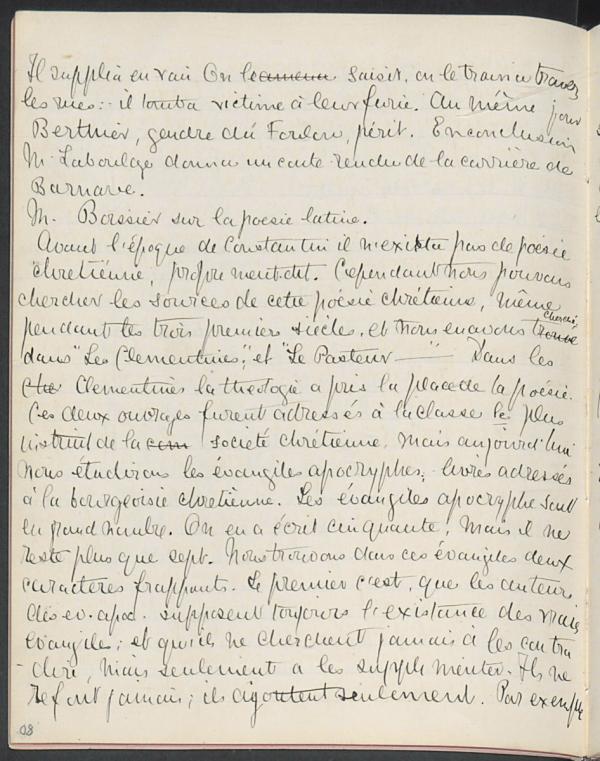 Il supplia en vain On le saisit, on le traina a travers
les rues: il tomba victime à leur furie. Au même jour
Berthier, gendre du Foulon, périt. En conclusion
M. Laboulaye donna un conte-rendu de la carrière de
Barnave.
M. Boissier sur la poesie latine.
Avant l'époque de Constantin il n'exista pas de poésie
chretiénne, proprement dit. Cependant nous pouvons
chercher les sources de cette poésie chrétienne, même
pendant les trois premiers siècles, et nous en avons cherché
dans "Les Clementines," et "Le Pasteur — " Dans les
Che Clementines la theologie a pris la place de la poésie.
Ces deux ouvrages furent adressés à la classe la plus
instruit de la com société chrétienne. Mais aujourd'hui
nous étudirons les évangiles apocryphes; livres adressés
à la bourgeoisie chretienne. Les évangiles apocryphe sont
en grand nombre. On en a écrit cinquante; mais il ne
reste plus que sept. Nous trouvons dans ces évangiles deux
caractères frappants. Le premier c'est, que les auteurs
des ev. apoc. supposent toujours l'existance des vrais
évangiles; et qu'ils ne cherchent jamais à les contra
-dire, mais seulement a les supplementer. Ils ne
refont jamais; ils ajoutent seulement. Par exemple
08